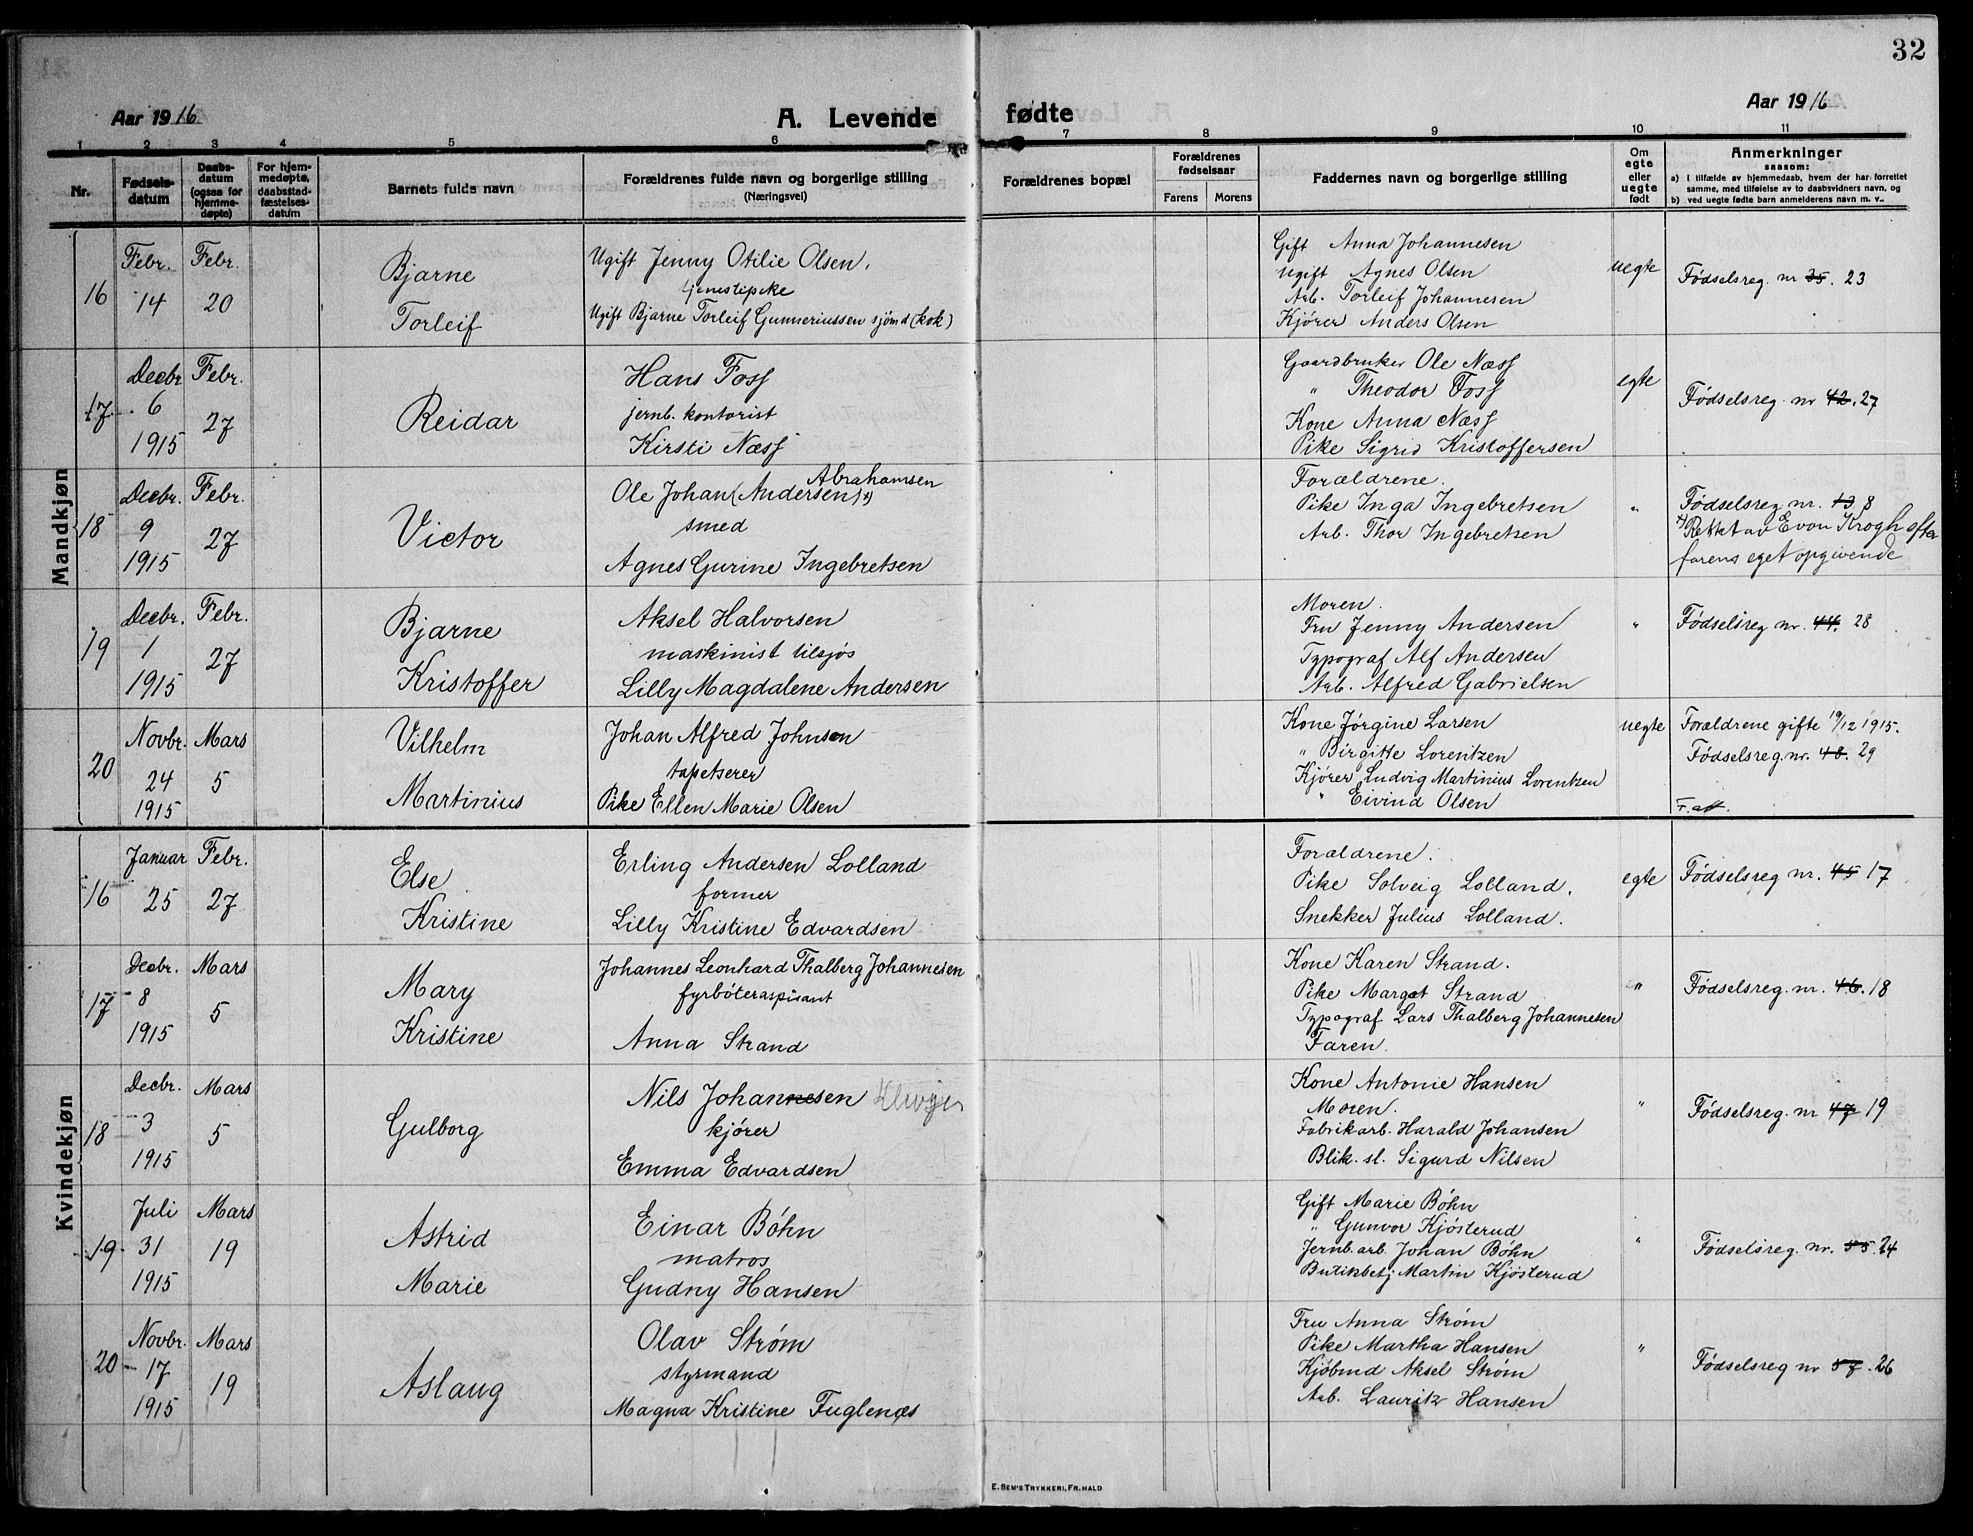 32
Aar 1916
A. Levende fødte
Aar 1916
1 2 3 4 5 6 7 8 9 10 11
Nr.
Fødsels-
datum
Daabs-
datum
(ogsaa for
hjemme-
døpte)
For hjem-
medøpte,
daabsstad-
fæstelses-
datum
Barnets fulde navn
Forældrenes fulde navn og borgerlige stilling
(Næringsvei)
Forældrenes bopæl
Forældrenes
fødselsaar
Farens Morens
Faddernes navn og borgerlige stilling
Om
egte
eller
uegte
født
Anmerkninger
saasom:
a) I tilfælde av hjemmedaab, hvem der har forrettet
samme, med tilføielse av to daabsvidners navn, og
b) ved uegte fødte barn anmelderens navn m. v..
Mandkjøn
16
Febr.
14
Febr.
20
Bjarne
Torleif
Ugift Jenny Otilie Olsen,
tjenestepike
Ugift Bjarne Torleif Gunneriussen sjømd (kok)
Gift Anna Johannesen
Ugift Agnes Olsen
Arb. Torleif Johannesen
Kjører Anders Olsen
uegte
Fødselsreg. nr 35. 23
17
Decbr
6
1915
Febr.
27
Reidar
Hans Foss
jernb. kontorist
Kirsti Næss
Gaardbruker Ole Næss
" Theodor Foss
Kone Anna Næss
Pike Sigrid Kristoffersen
egte
Fødselsreg. nr 42. 27
18
Decbr.
9
1915
Febr.
27
Victor
Abrahamsen
Ole Johan (Andersen) x)
smed
Agnes Gurine Ingebretsen
Forældrene.
Pike Inga Ingebretsen
Arb. Thor Ingebretsen
"
Fødselsreg nr. 13 8
x) Rettet av Evan Krogh efter
farens eget opgivende
19
Decbr.
1
1915
Febr.
27
Bjarne
Kristoffer
Aksel Halvorsen
maskinist tilsjøs
Lilly Magdalene Andersen
Moren.
Fru Jenny Andersen
Typograf Alf Andersen
Arb. Alfred Gabrielsen
"
Fødselsreg nr. 44. 28
20
Novbr.
24
1915
Mars
5
Vilhelm
Martinius
Johan Alfred Johnsen
tapetserer
Pike Ellen Marie Olsen
Kone Jørgine Larsen
" Birgitte Lorentzen
Kjører Ludvig Martinius Lorentzen
" Eivind Olsen
uegte
Forældrene gifte 19/12 1915.
Fødselsreg. nr. 48. 29
F. att.
Kvindekjøn
16
Januar
25
Febr.
27
Else
Kristine
Erling Andersen Lolland
former
Lilly Kristine Edvardsen
Forældrene.
Pike Solveig Lolland.
Snekker Julius Lolland.
egte
Fødselsreg nr. 45 17
17
Decbr.
8
1915
Mars
5
Mary
Kristine
Johannes Leonhard Thalberg Johannesen
fyrbøteraspirant
Anna Strand
Kone Karen Strand.
Pike Margat Strand
Typograf Lars Thalberg Johannesen
Faren.
"
Fødselsreg. nr. 46. 18
18
Decbr.
3
1915
Mars
5
Gulborg
Nils Johannesen
kjører
Emma Edvardsen
Kone Antonie Hansen
Moren.
Fabrikarb. Harald Johansen
Blik. sl. Sigurd Nilsen
"
Fødselsreg. nr 47 19
19
Juli
31
1915
Mars
19
Astrid
Marie
Einar Bøhn
matros
Gudny Hansen
Gift Marie Bøhn
" Gunvor Kjøsterud
Jernb. arb. Johan Bøhn
Butikbetj Martin Kjøsterud
"
Fødselsreg. nr. 55. 24
20
Novbr.
17
1915
Mars
19
Aslaug
Olav Strøm
styrmand
Magna Kristine Fuglenæs
Fru Anna Strøm
Pike Martha Hansen
Kjøbmd Aksel Strøm
Arb. Lauritz Hansen
"
Fødselsreg nr 57. 26
E. SEM'S TRYKKERI, FR.HALD